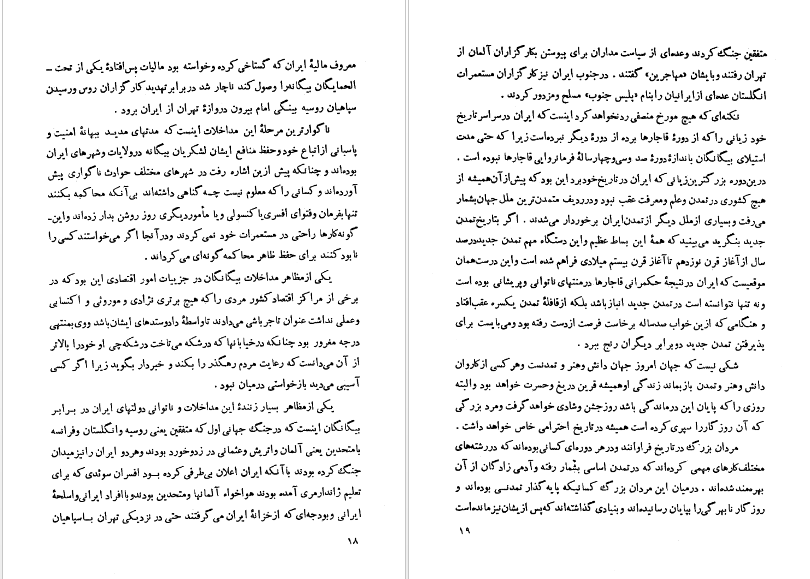 معروف مالیهٔ ایران که گستاخی کرده وخواسته بود مالیات پس‌افتادهٔ یکی از تحت‌ــ
الحمایگان بیگانه‌را وصول کند ناچار شد دربرابر تهدید کارگزاران روس ورسیدن
سپاهیان روسیه بینگی امام بیرون دروازهٔ تهران از ایران برود .
ناگوارترین مرحلهٔ این مداخلات اینست‌که مدتهای مدید ببهانهٔ امنیت و
پاسبانی از اتباع خود وحفظ منافع ایشان لشکریان بیگانه درولایات وشهرهای ایران
بوده‌اند و چنانکه پیش ازین اشاره رفت در شهرهای مختلف حوادث ناگواری پیش
آورده‌اند وکسانی را که معلوم نیست چه گناهی داشته‌اند بی‌آنکه محاکمه بکنند
تنها بفرمان وفتوای افسری یا کنسولی ویا مأمور دیگری روز روشن بدار زده‌اند واین‌ــ
گونه‌کارها راحتی در مستعمرات خود نمی‌کردند ودرآنجا اگر می‌خواستند کسی را
نابود کنند برای حفظ ظاهر محاکمه گونه‌ای می‌کرداند .
یکی ازمظاهر مداخلات بیگانگان در جزییات امور اقتصادی این بود که در
برخی از مراکز اقتصاد کشور مردی راکه هیچ برتری نژادی و موروثی و اکتسابی
وعملی نداشت عنوان تاجرباشی می‌دادند تاواسطهٔ دادوستدهای ایشان‌باشد ووی‌بمنتهی
درجه مغرور بود چنانکه درخیابانها که درشکه می‌تاخت درشکه‌چی او خود را بالاتر
از آن می‌دانست‌که رعایت مردم رهگذر را بکند و خبردار بگوید زیرا اگر کسی
آسیبی می‌دید بازخواستی درمیان نبود .
یکی ازمظاهر بسیار زنندهٔ این مداخلات و ناتوانی دولتهای ایران در برابر
بیگانگان اینست که درجنگ جهانی اول که متفقین یعنی روسیه وانگلستان وفرانسه
بامتحدین یعنی آلمان واتریش وعثمانی در زدوخورد بودند وهردو ایران رانیز میدان
جنگ کرده بودند باآنکه ایران اعلان بی‌طرفی کرده بود افسران سوئدی که برای
تعلیم ژاندارمری آمده بودند هواخواه آلمانها ومتحدین بودند وباافراد ایرانی واسلحهٔ
ایرانی وبودجه‌ای که ازخزانهٔ ایران می‌گرفتند حتی در نزدیکی تهران باسپاهیان
۱۸
متفقین جنگ کردند وعده‌ای از سیاست مداران برای پیوستن بکارگزاران آلمان از
تهران رفتند وبایشان «مهاجرین» گفتند . درجنوب ایران نیز کارگزاران مستعمرات
انگلستان عده‌ای ازایرانیان را بنام «پلیس جنوب» مسلح ومزدور کردند .
نکته‌ای که هیچ مورخ منصفی ردنخواهد کرد اینست‌که ایران درسراسر تاریخ
خود زیانی راکه از دورهٔ قاجارها برده از دورهٔ دیگر نبرده‌است زیرا که حتی مدت
استیلای بیگانگان باندازهٔ دورهٔ صد وسی‌وچهارسالهٔ فرمانروایی قاجارها نبوده است .
درین‌دوره بزرگترین‌زیانی‌که ایران درتاریخ خودبرد این بود که پیش‌ازآن‌همیشه از
هیچ کشوری درتمدن وعلم ومعرفت عقب نبود ودرردیف متمدن‌ترین ملل جهان‌بشمار
می‌رفت وبسیاری ازملل دیگر ازتمدن‌ایران برخوردار می‌شدند . اگر بتاریخ‌تمدن
جدید بنگرید می‌بینید که همهٔ این بساط عظیم واین دستگاه مهم تمدن جدیددرصد
سال ازآغاز قرن نوزدهم تاآغاز قرن بیستم میلادی فراهم شده است واین درست‌همان
موقعیست‌که ایران درنتیجهٔ حکمرانی قاجارها درمنتهای ناتوانی وپریشانی بوده است
ونه تنها نتوانسته است درتمدن جدید انبازباشد بلکه ازقافلهٔ تمدن یکسره عقب‌افتاد
و هنگامی که ازین خواب صدساله برخاست فرصت ازدست رفته بود ومی‌بایست برای
پذیرفتن تمدن جدید دوبرابر دیگران رنج ببرد .
شکی نیست‌که جهان امروز جهان دانش وهنر و تمدنست وهرکسی ازکاروان
دانش وهنر وتمدن بازبماند زندگی اوهمیشه قرین دریغ وحسرت خواهد بود والبته
روزی راکه پایان این درماندگی باشد روزجشن وشادی خواهد گرفت ومرد بزرگی
که آن روزگاررا سپری کرده است همیشه درتاریخ احترامی خاص خواهد داشت .
مردان بزرگ درتاریخ فراوانند ودرهر دوره‌ای کسانی‌بوده‌اند که دررشته‌های
مختلف‌کارهای مهمی کرده‌اند که درتمدن اساسی بشمار رفته وآدمی زادگان از آن
بهره‌مند شده‌اند . درمیان این مردان بزرگ کسانیکه پایه‌گذار تمدنی بوده‌اند و
روزگار نابهرگی‌را بپایان رسانیده‌اند و بنیادی گذاشته‌اند که‌پس ازیشان‌نیزمانده‌است
۱۹